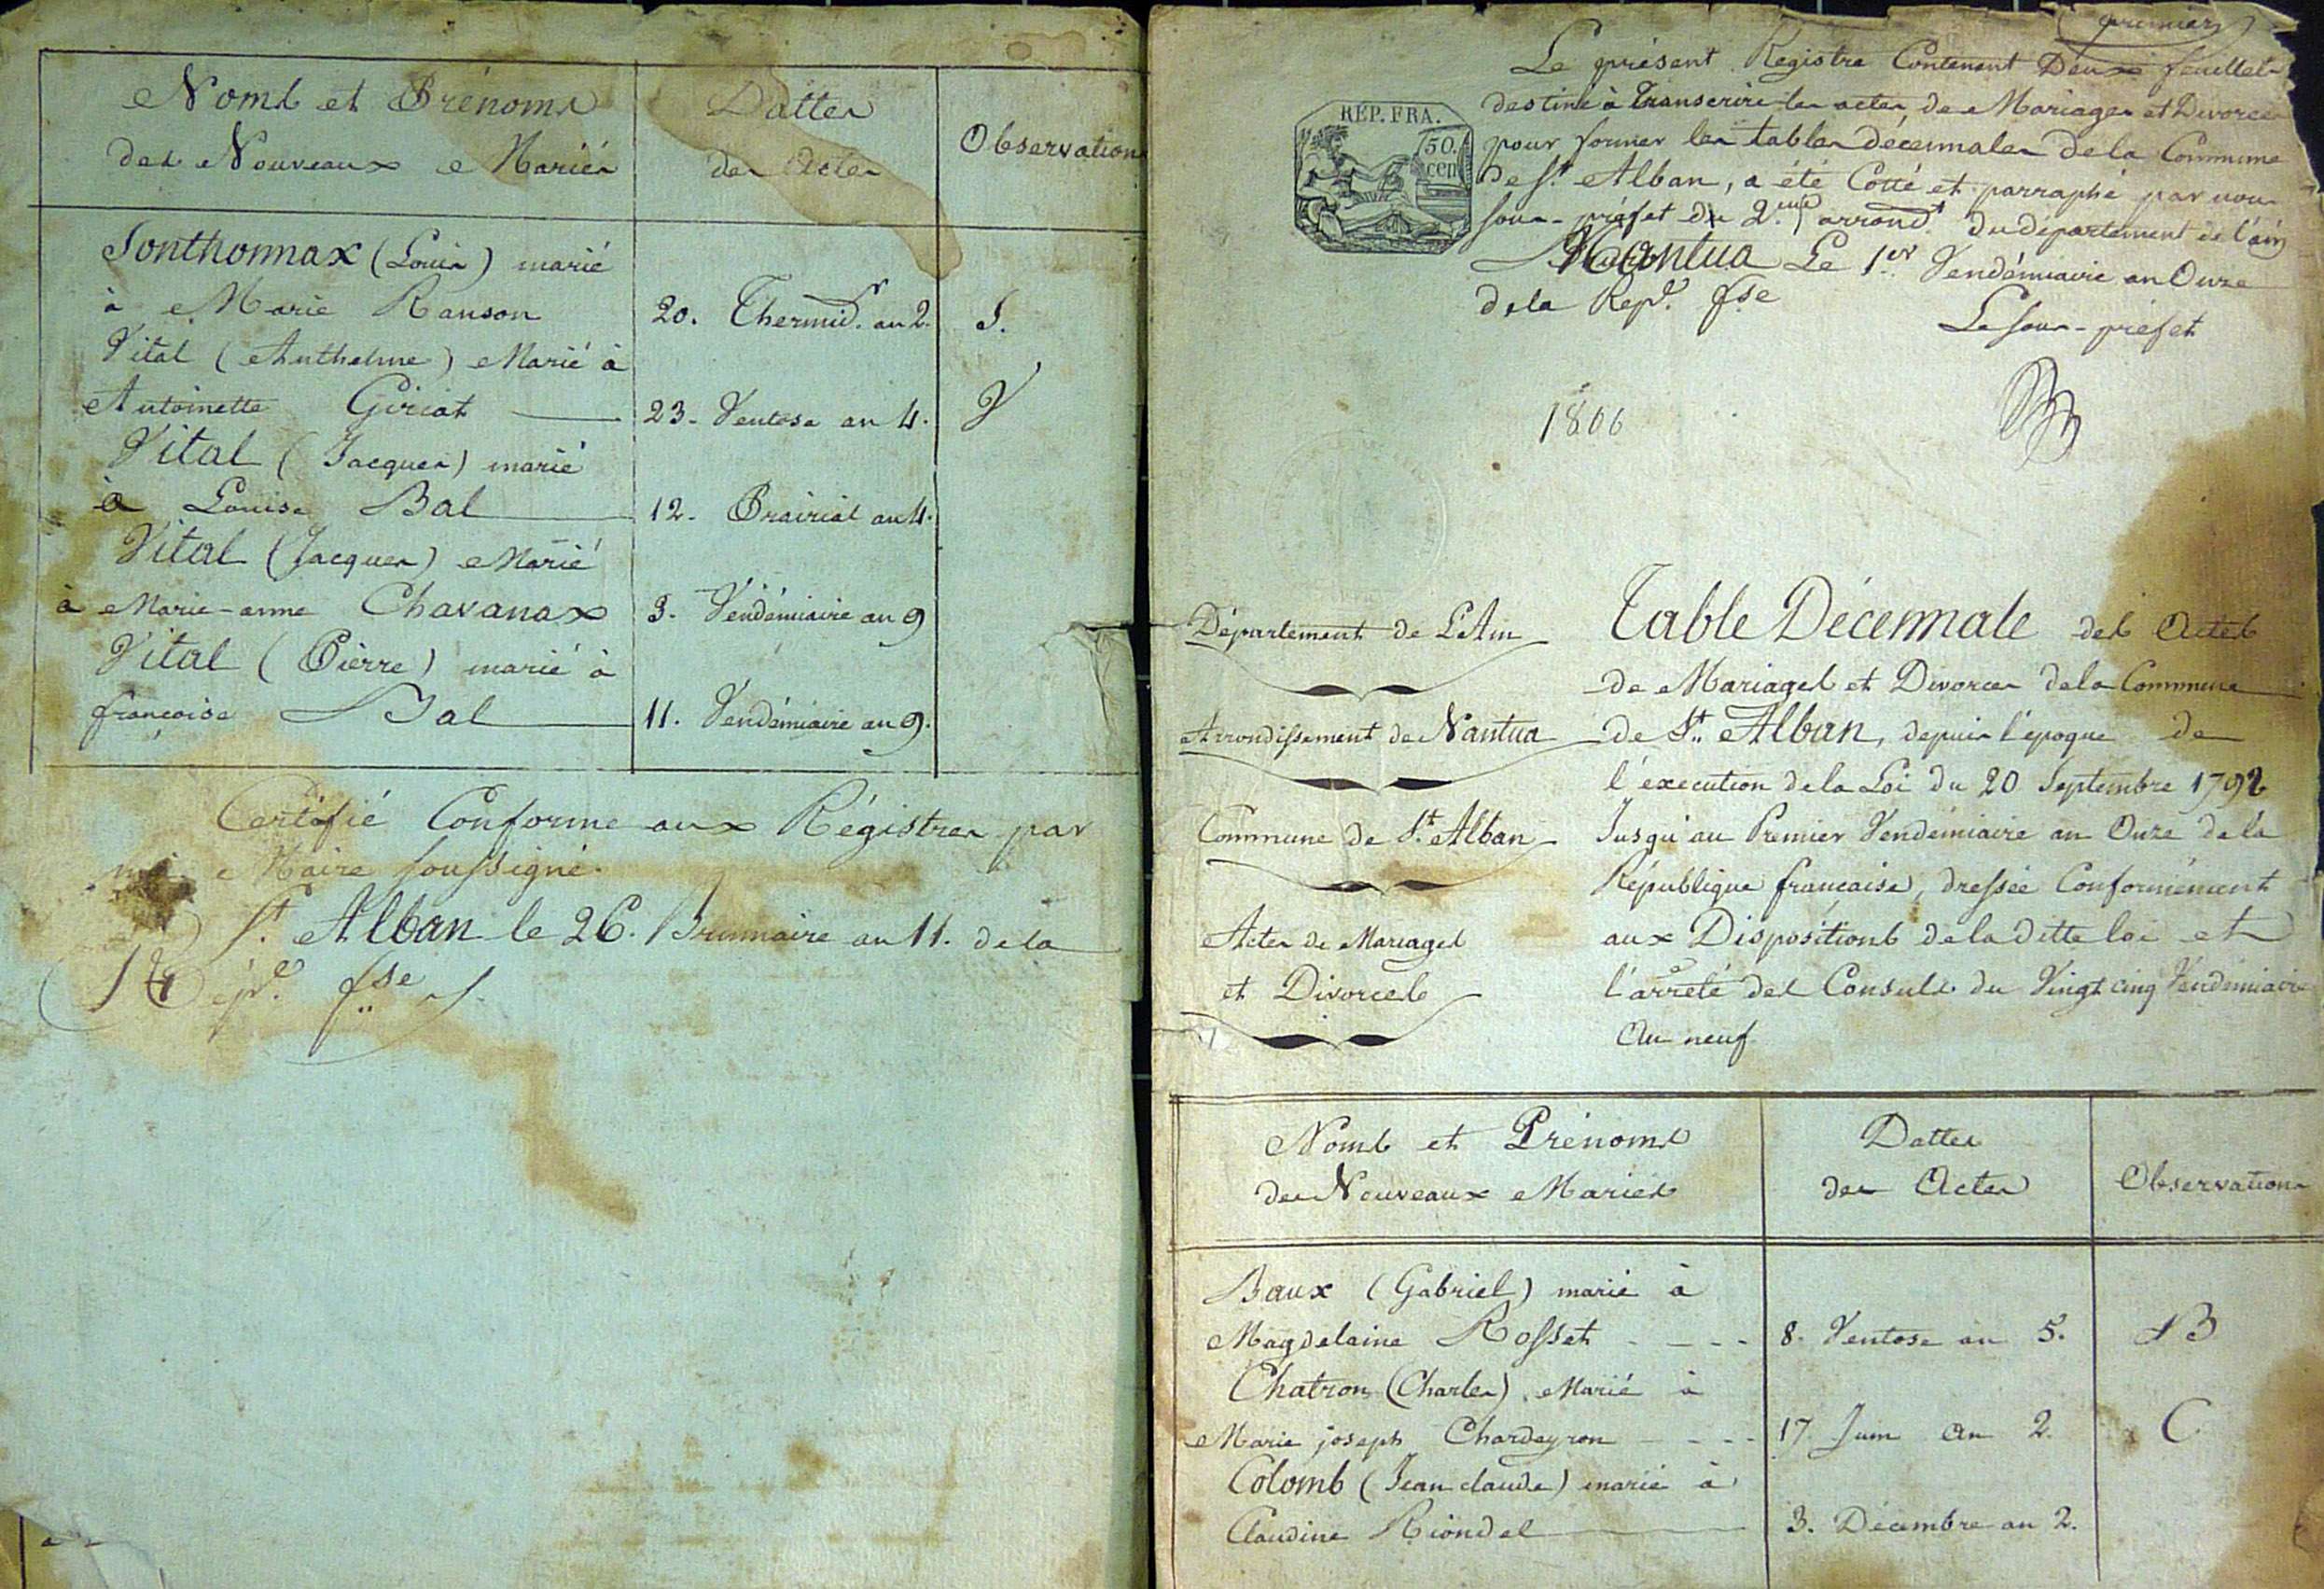 Noms et Prénoms
des Nouveaux Mariés
Dattes
des Actes
Observations
Sonthonnax (Louis) marié
à Marie Ranson
20. Thermid.r an 2.
S.
Vital (Anthelme) Marié à
Antoinette Giriat
23. Ventose an 4.
V
Vital (Jacques) marié
à Louise Bal
12. Prairial an 4.
Vital (Jacques) Marié
à Marie-anne Chavanax
3. Vendémiaire an 9
Vital (Pierre) marié à
françoise Bal
11. Vendémiaire an 9.
Certifié Conforme aux Régistres par
moi Maire soussigné.
St. Alban le 26. Brumaire an 11. de la
Rép.e f.se
premier
Le présent Registre Contenant Deux feuillets
destiné à Transcrire les actes, de Mariages et Divorces
pour former les tables décennales de la Commune
de St. Alban, a été Cotté et parraphé par nous
sous-préfet du 2.eme arrond.t du département de l'ain
Nantua Le 1.er Vendémiaire an Onze
de la Rep.e f.se
Le sous-préfet
RÉP. FRA.
50.
cen
1806
Département de L'Ain
Arrondissement de Nantua
Commune de St. Alban
Actes de Mariages
et Divorces
Table Décennale des Actes
de Mariages et Divorces de la Commune
de St. Alban, depuis l'époque de
l'execution de la Loi du 20 Septembre 1792
Jusqu'au Premier Vendémiaire an Onze de la
République française, dressée Conformément
aux Dispositions de la ditte loi et
l'arrêté des Consuls du Vingt cinq Vendémiaire
An neuf
Noms et Prénoms
des Nouveaux Mariés
Dattes
des Actes
Observations
Baux (Gabriel) marié à
Magdelaine Rosset
8. Ventose an 5.
B
Chatron (Charles) Marié à
Marie joseph Chardeyron
17. Juin An 2.
C
Colomb (Jean claude) marié à
Claudine Riondel
3. Décembre an 2.